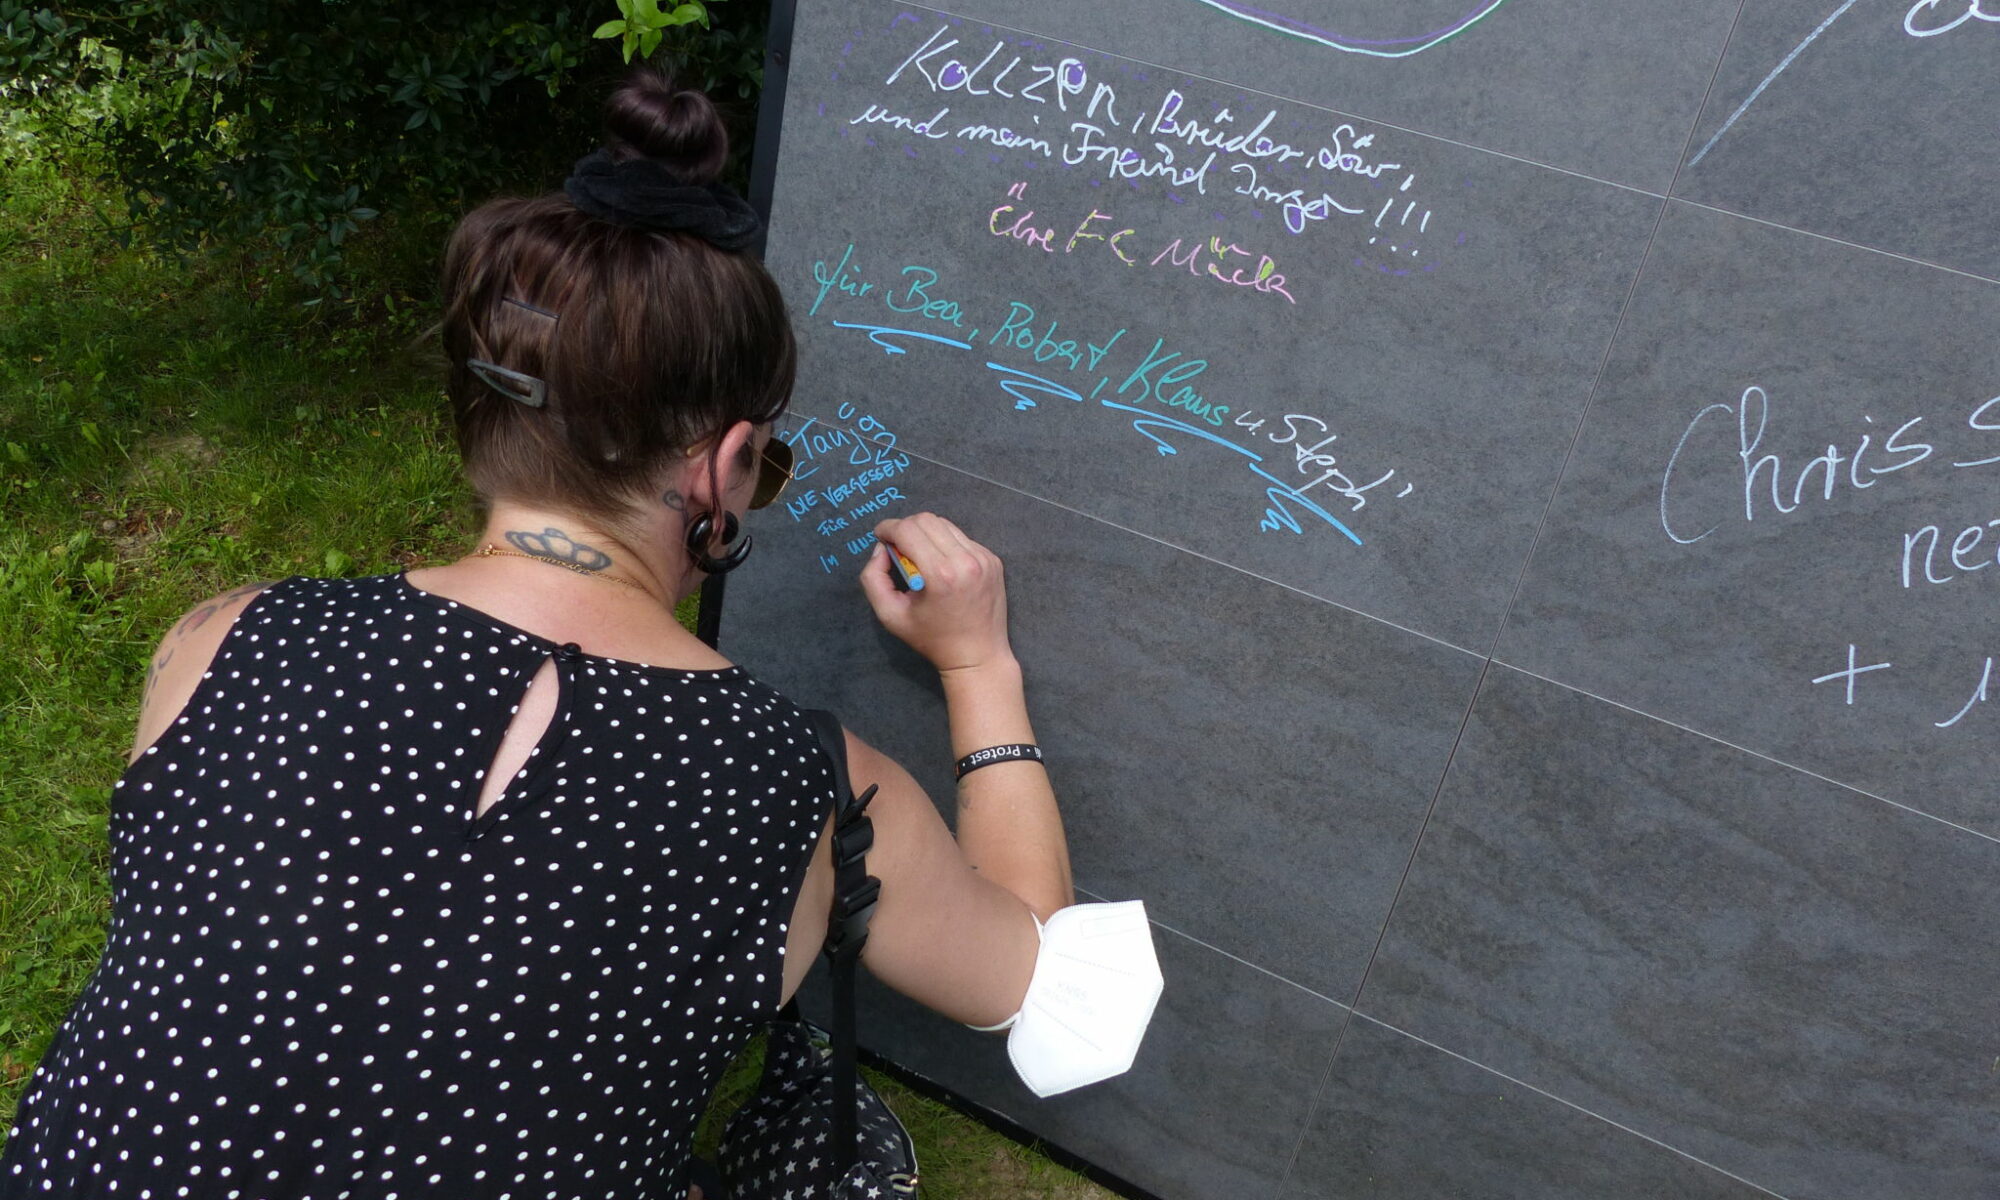 Kollzen, Brüder, Söw,
und mein Freund Inger!!!
Ehre FC Mücke
für Bea, Robert, Klaus u. Steph'
Tanja
NIE VERGESSEN
FÜR IMMER
IN UNS
Chris S
ne
+
Protest
KN95